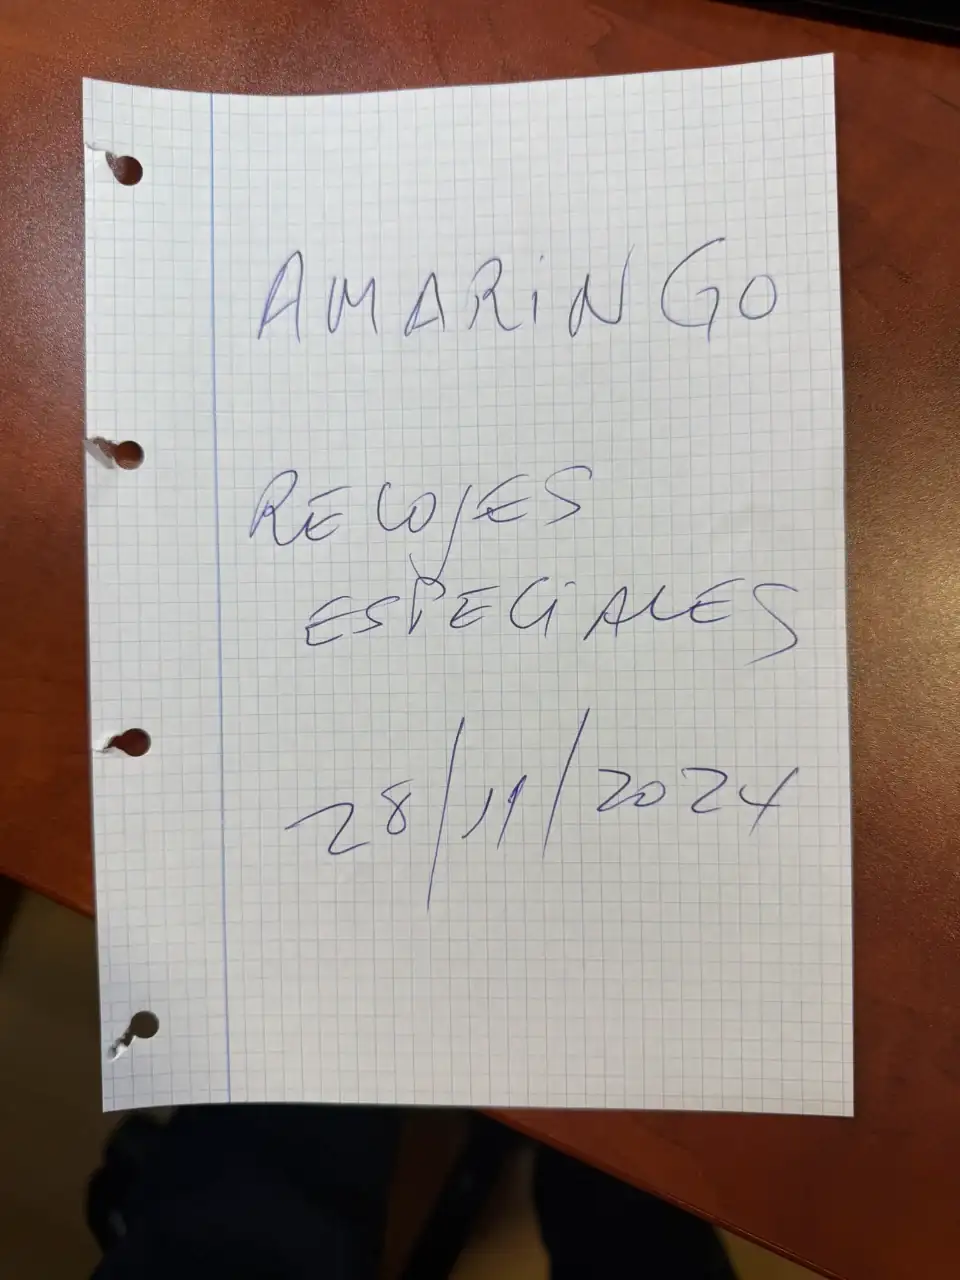 AMARINGO
RELOJES
ESPECIALES
28/11/2024